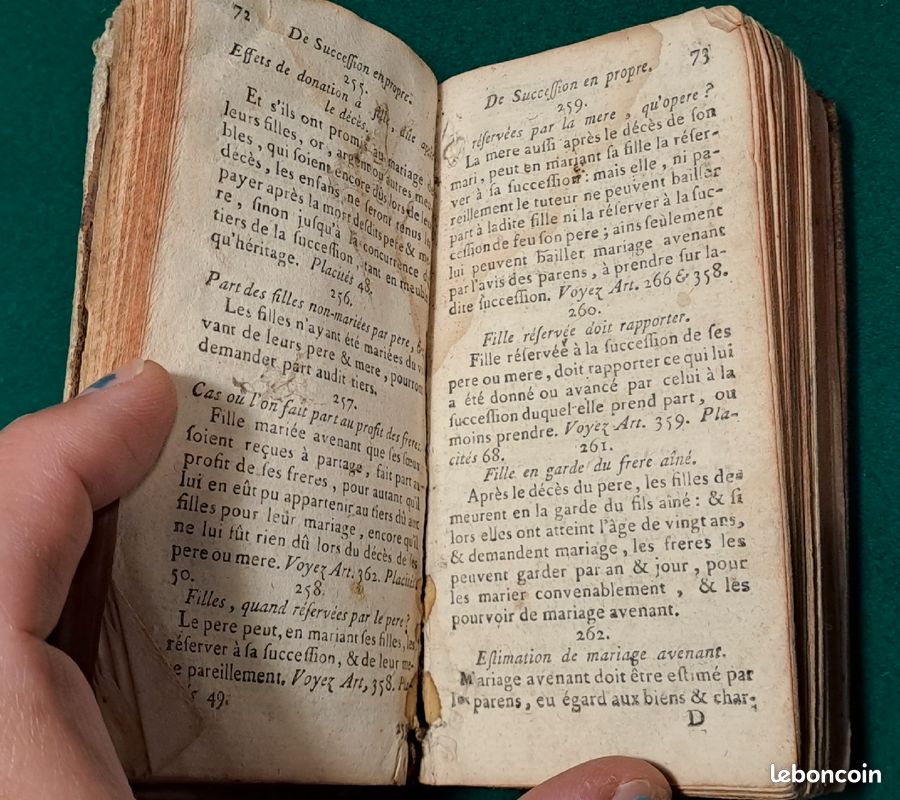 72
De Succession en propre.
255.
Effets de donation à fille, dûe après
le décès.
Et s'ils ont promis au mariage de
leurs filles, or, argent ou autres meu-
bles, qui soient encore dûs lors de leur
décès, les enfans ne seront tenus les
payer après la mort desdits pere & me-
re, sinon jusqu'à la concurrence du
tiers de la succession, tant en meuble
qu'héritage. Placités 48.
256.
Part des filles non-mariées par pere, &c.
Les filles n'ayant été mariées du vi-
vant de leurs pere & mere, pourront
demander part audit tiers.
257.
Cas où l'on fait part au profit des freres.
Fille mariée avenant que ses sœurs
soient reçues à partage, fait part au
profit de ses freres, pour autant qu'il
lui en eût pu appartenir au tiers dû aux
filles pour leur mariage, encore qu'il
ne lui fût rien dû lors du décès de ses
pere ou mere. Voyez Art. 362. Placités
50.
258.
Filles, quand réservées par le pere?
Le pere peut, en mariant ses filles, les
réserver à sa succession, & de leur me-
re pareillement. Voyez Art, 358. Pla-
49.
73
De Succession en propre.
259.
réservées par la mere, qu'opere?
La mere aussi après le décès de son
mari, peut en mariant sa fille la réser-
ver à sa succession: mais elle, ni pa-
reillement le tuteur ne peuvent bailler
part à ladite fille ni la réserver à la suc-
cession de feu son pere; ains seulement
lui peuvent bailler mariage avenant
par l'avis des parens, à prendre sur la-
dite succession. Voyez Art. 266 & 358.
260.
Fille réservée doit rapporter.
Fille réservée à la succession de ses
pere ou mere, doit rapporter ce qui lui
a été donné ou avancé par celui à la
succession duquel elle prend part, ou
moins prendre. Voyez Art. 359. Pla-
cités 68.
261.
Fille en garde du frere aîné.
Après le décès du pere, les filles de-
meurent en la garde du fils aîné: & si
lors elles ont atteint l'âge de vingt ans,
& demandent mariage, les freres les
peuvent garder par an & jour, pour
les marier convenablement, & les
pourvoir de mariage avenant.
262.
Estimation de mariage avenant.
Mariage avenant doit être estimé par
les parens, eu égard aux biens & char-
D
leboncoin